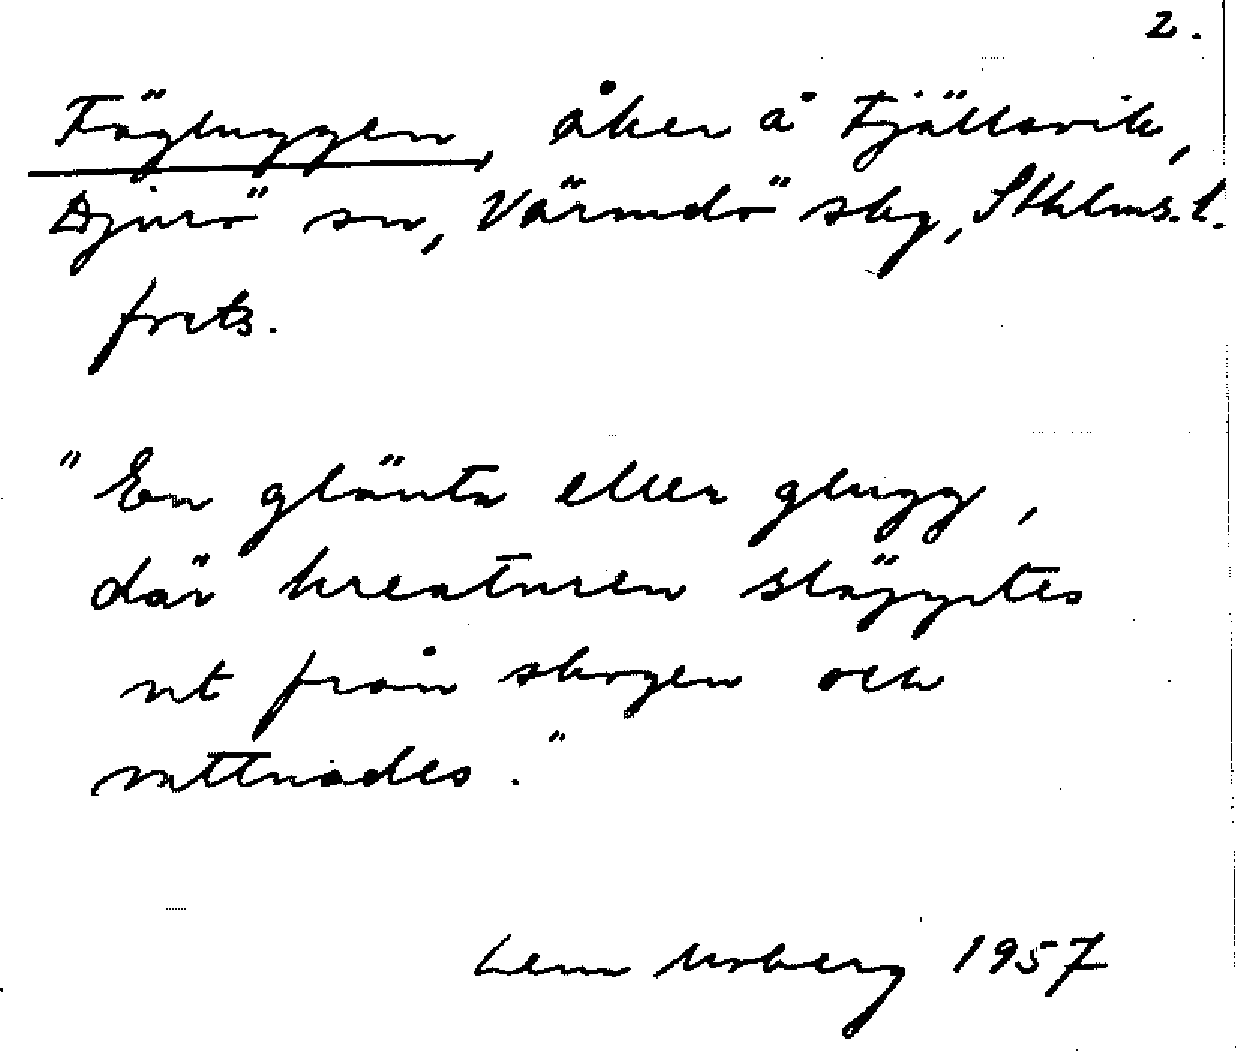 2.
Fägluggen, åker å Fjällsvik,
Djurö sn, Värmdö skg, Sthlms. l.
forts.
"En glänta eller glugg,
där kreaturen släpptes
ut från skogen och
vattnades."
Lena Moberg 1957